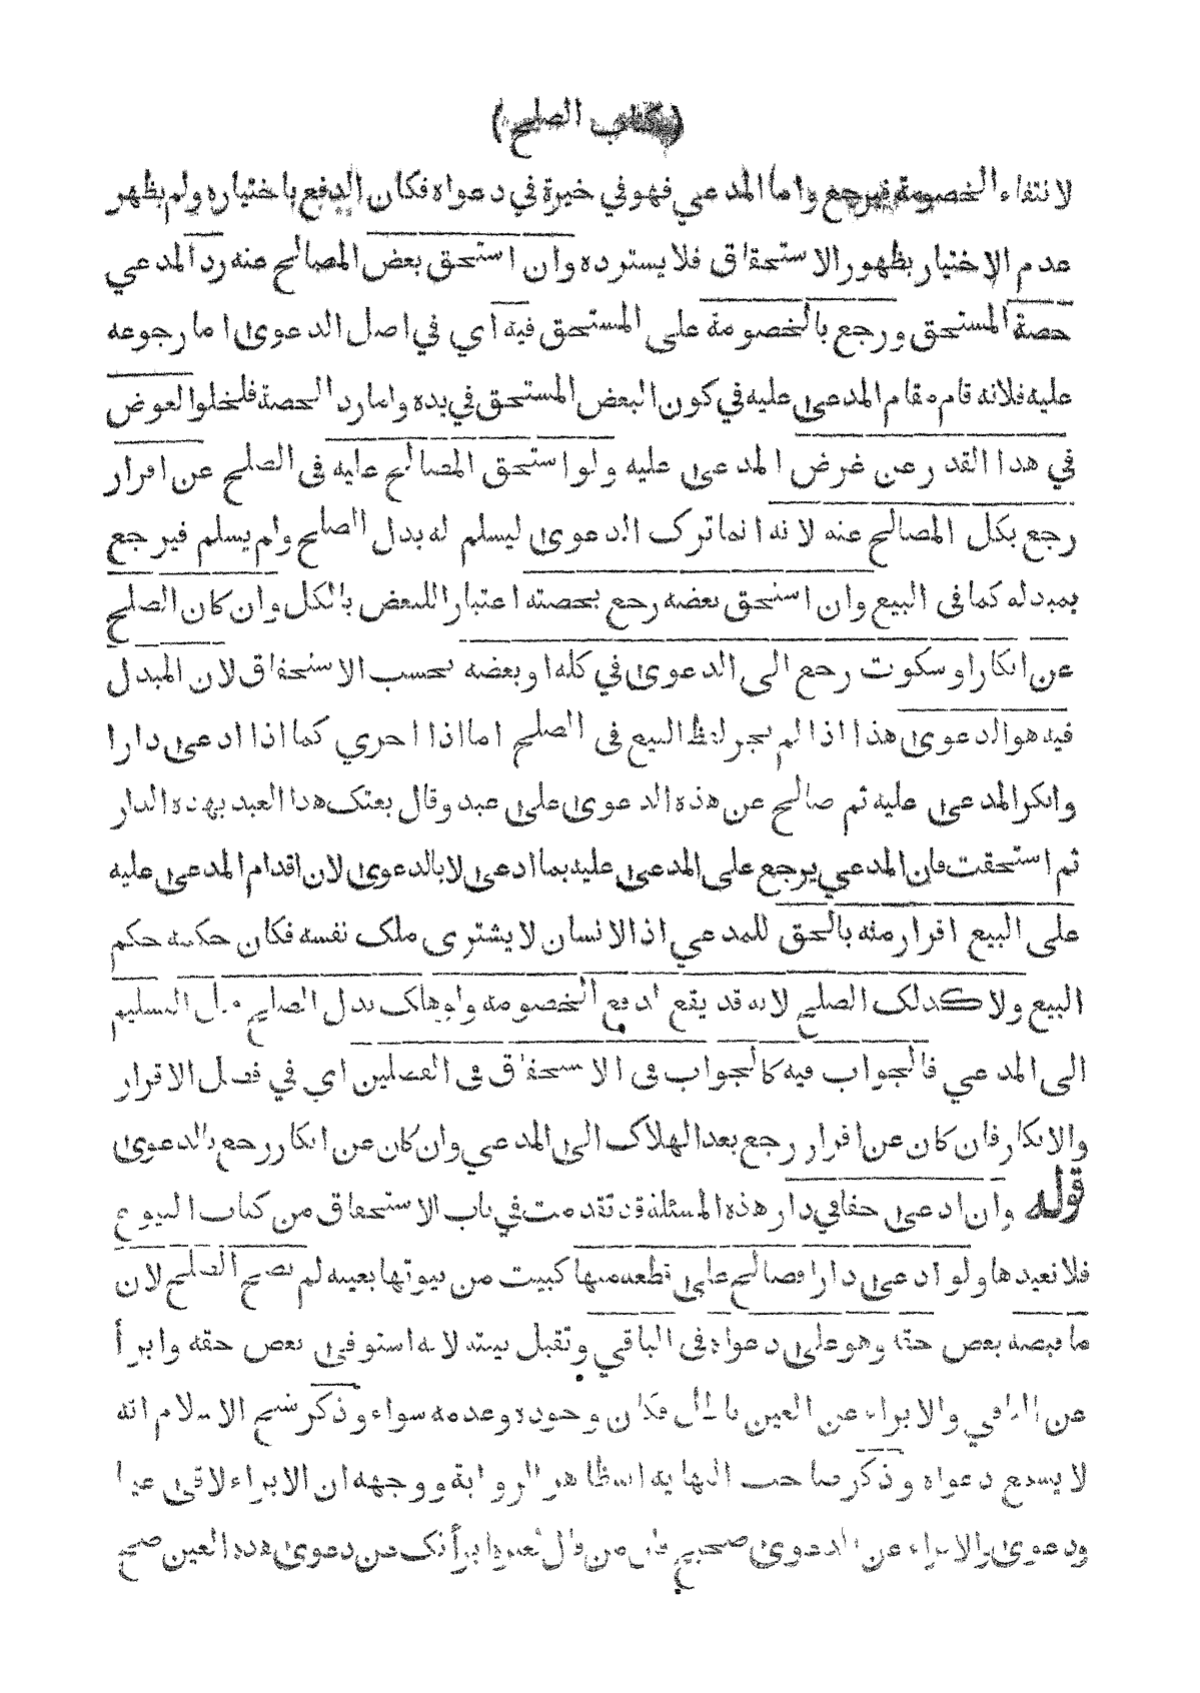 (كتاب الصلح)
لانتفاء الخصومة فيرجع واما المدعي فهو في خيرة في دعواه فكان الدفع باختياره ولم يظهر
عدم الاختيار بظهور الاستحقاق فلا يسترده وان استحق بعض المصالح عنه رد المدعي
حصة المستحق ورجع بالخصومة على المستحق فيه اي في اصل الدعوى اما رجوعه
عليه فلانه قام مقام المدعى عليه في كون البعض المستحق في يده واما رد الحصة فلخلو العوض
في هذا القدر عن غرض المدعى عليه ولو استحق المصالح عليه في الصلح عن اقرار
رجع بكل المصالح عنه لانه انما ترك الدعوى ليسلم له بدل الصلح ولم يسلم فيرجع
بمبدله كما في البيع وان استحق بعضه رجع بحصته اعتبار اللبعض بالكل وان كان الصلح
عن انكار او سكوت رجع الى الدعوى في كله او بعضه بحسب الاستحقاق لان المبدل
فيه هو الدعوى هذا اذا لم يجر لفظ البيع في الصلح اما اذا اجري كما اذا ادعى دارا
وانكر المدعى عليه ثم صالح عن هذه الدعوى على عبد وقال بعتك هذا العبد بهذه الدار
ثم استحقت فان المدعي يرجع على المدعى عليه بما ادعى لا بالدعوى لان اقدام المدعى عليه
على البيع اقرار منه بالحق للمدعي اذ الانسان لا يشترى ملك نفسه فكان حكمه حكم
البيع ولا كذلك الصلح لانه قد يقع لدفع الخصومة ولو هلك بدل الصلح قبل التسليم
الى المدعي فالجواب فيه كالجواب في الاستحقاق في الفصلين اي في فصل الاقرار
والانكار فان كان عن اقرار رجع بعد الهلاك الى المدعي وان كان عن انكار رجع بالدعوى
قوله وان ادعى حقا في دار هذه المسئلة قد تقدمت في باب الاستحقاق من كتاب البيوع
فلا نعيدها ولو ادعى دارا فصالح على قطعه منها كبيت من بيوتها بعينه لم يصح الصلح لان
ما قبضه بعض حقه وهو على دعواه في الباقي وتقبل بينته لانه استوفى بعض حقه وابرأ
عن الباقي والابراء عن العين باطل فكان وجوده وعدمه سواء وذكر شيخ الاسلام انه
لا يسمع دعواه وذكر صاحب النهاية انه ظاهر الرواية ووجهه ان الابراء لاقى عينا
ودعوى والابراء عن الدعوى صحيح فان من قال لغيره ابرأتك عن دعوى هذه العين صح